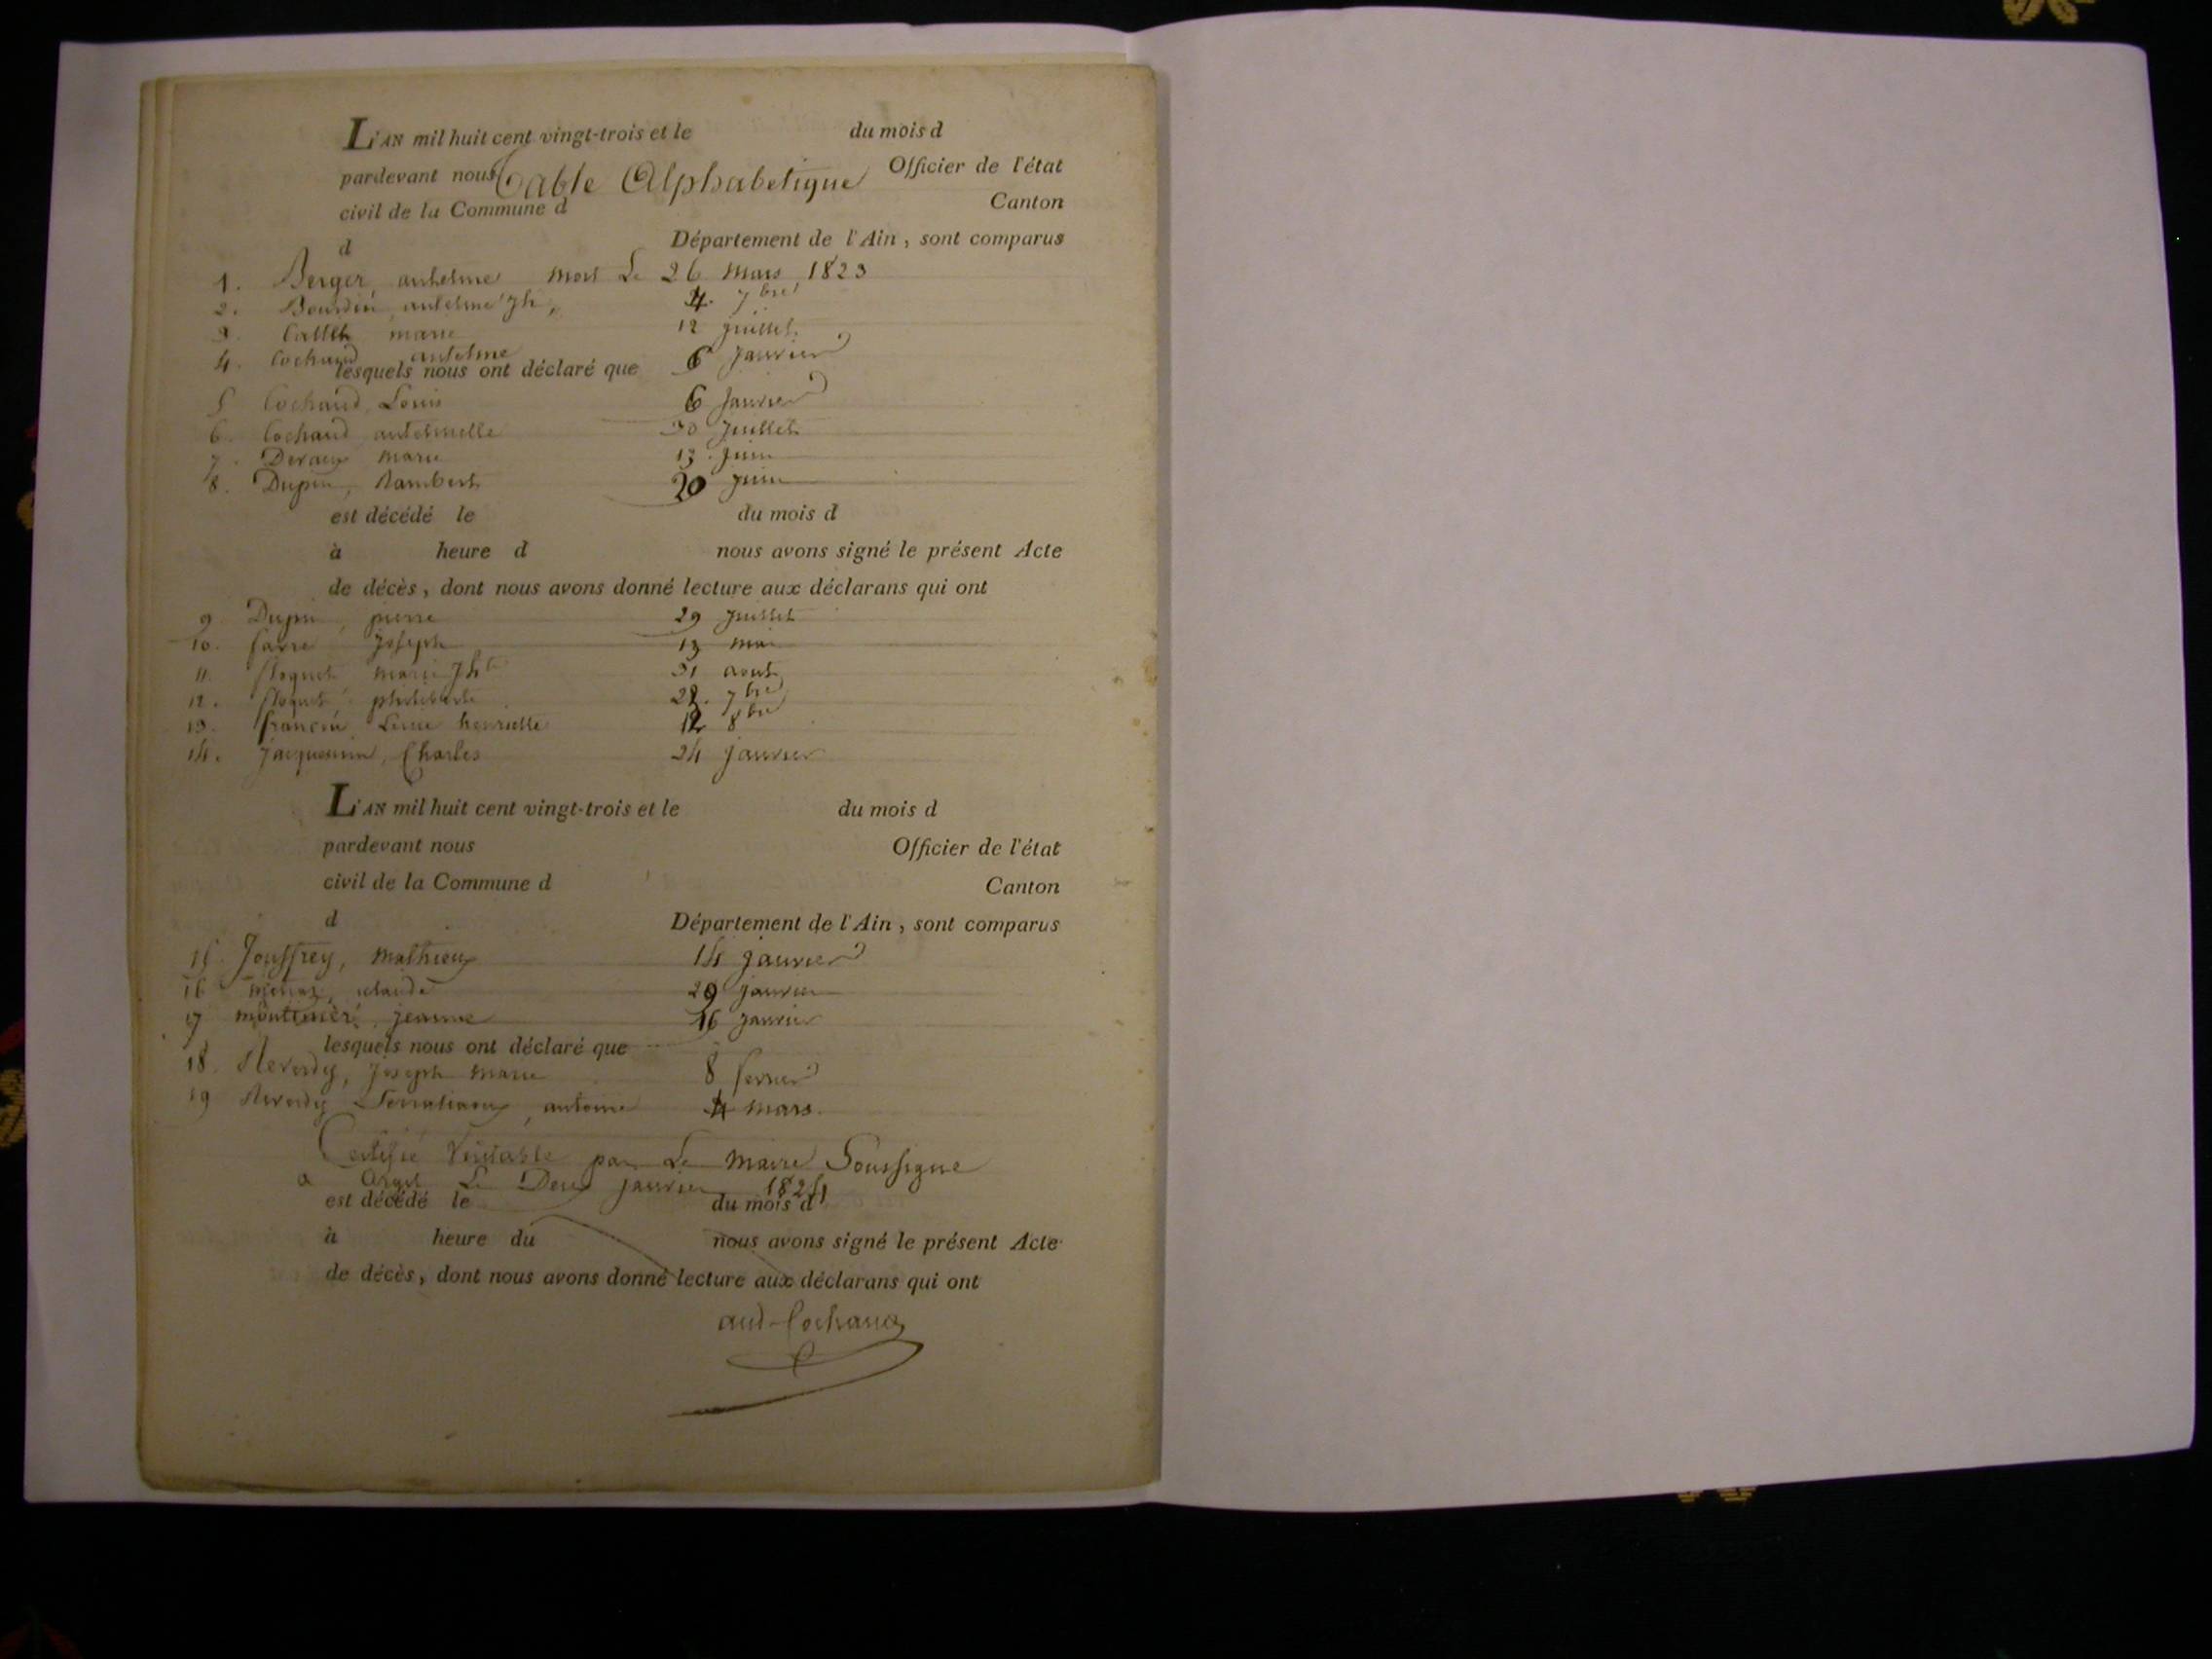 L'AN mil huit cent vingt-trois et le du mois d
pardevant nous Table Alphabetique Officier de l'état
civil de la Commune d Canton
d Département de l'Ain, sont comparus
1. Berger, anthelme mort Le 26 mars 1823
2. Bourdin, anthelme Jh, 4. 7bre
3. marie 12 juillet
4. Cochaud anthelme 6 janvier
lesquels nous ont déclaré que
5 Cochaud, Louis 6 janvier
6. Cochaud anthelmette 30 juillet
7. Deraux marie 13. juin
8. Dupin, Rambert 20 juin
est décédé le du mois d
à heure d nous avons signé le présent Acte
de décès, dont nous avons donné lecture aux déclarans qui ont
9 Dupin, pierre 29 juillet
10. favre joseph 13 mai
11. floquet marie Jhte 31 aout
12. floquet philiberte 28. 7bre
13. françin henriette 12 8bre
14. jacquemin, Charles 24 janvier
L'AN mil huit cent vingt-trois et le du mois d
pardevant nous Officier de l'état
civil de la Commune d Canton
d Département de l'Ain, sont comparus
15. Jouffrey, mathieux 14 janvier
16 claude 29 janvier
17 jeanne 16 janvier
lesquels nous ont déclaré que
18. Reverdy, Joseph marie 8 fevrier
19 Reverdy antoine 4 mars.
Certifié Véritable par Le maire Soussigné
a Le Deux janvier 1824
est décédé le du mois d
à heure du nous avons signé le présent Acte
de décès, dont nous avons donné lecture aux déclarans qui ont
and Cochaud